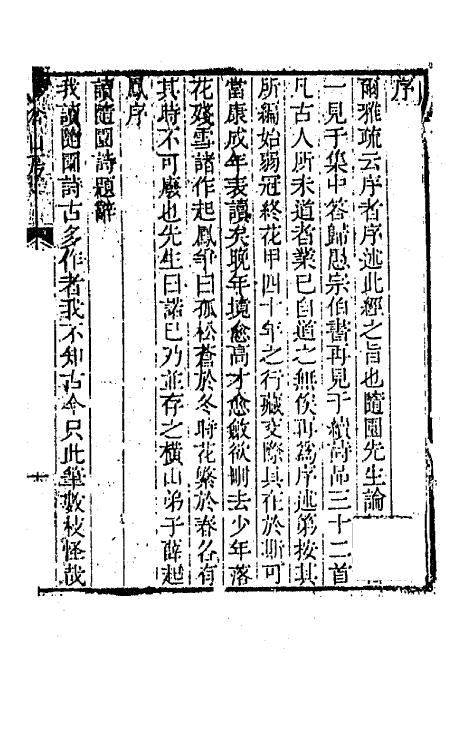 序
爾雅疏云序者序述此經之旨也隨園先生論
一見于集中答歸愚宗伯書再見于續詩品三十二首
凡古人所未道者業已自道之無俟再為序述第按其
所編始弱冠終花甲四十年之行藏交際具在於斯可
當康成年表讀矣晚年境愈高才愈斂欲刪去少年落
花殘雪諸作起鳳爭曰孤松蒼於冬時花繁於春各有
其時不可廢也先生曰諾已乃並存之橫山弟子薛起
鳳序
讀隨園詩題辭
我讀隨園詩古多作者我不知古今只此筆數枝怪哉